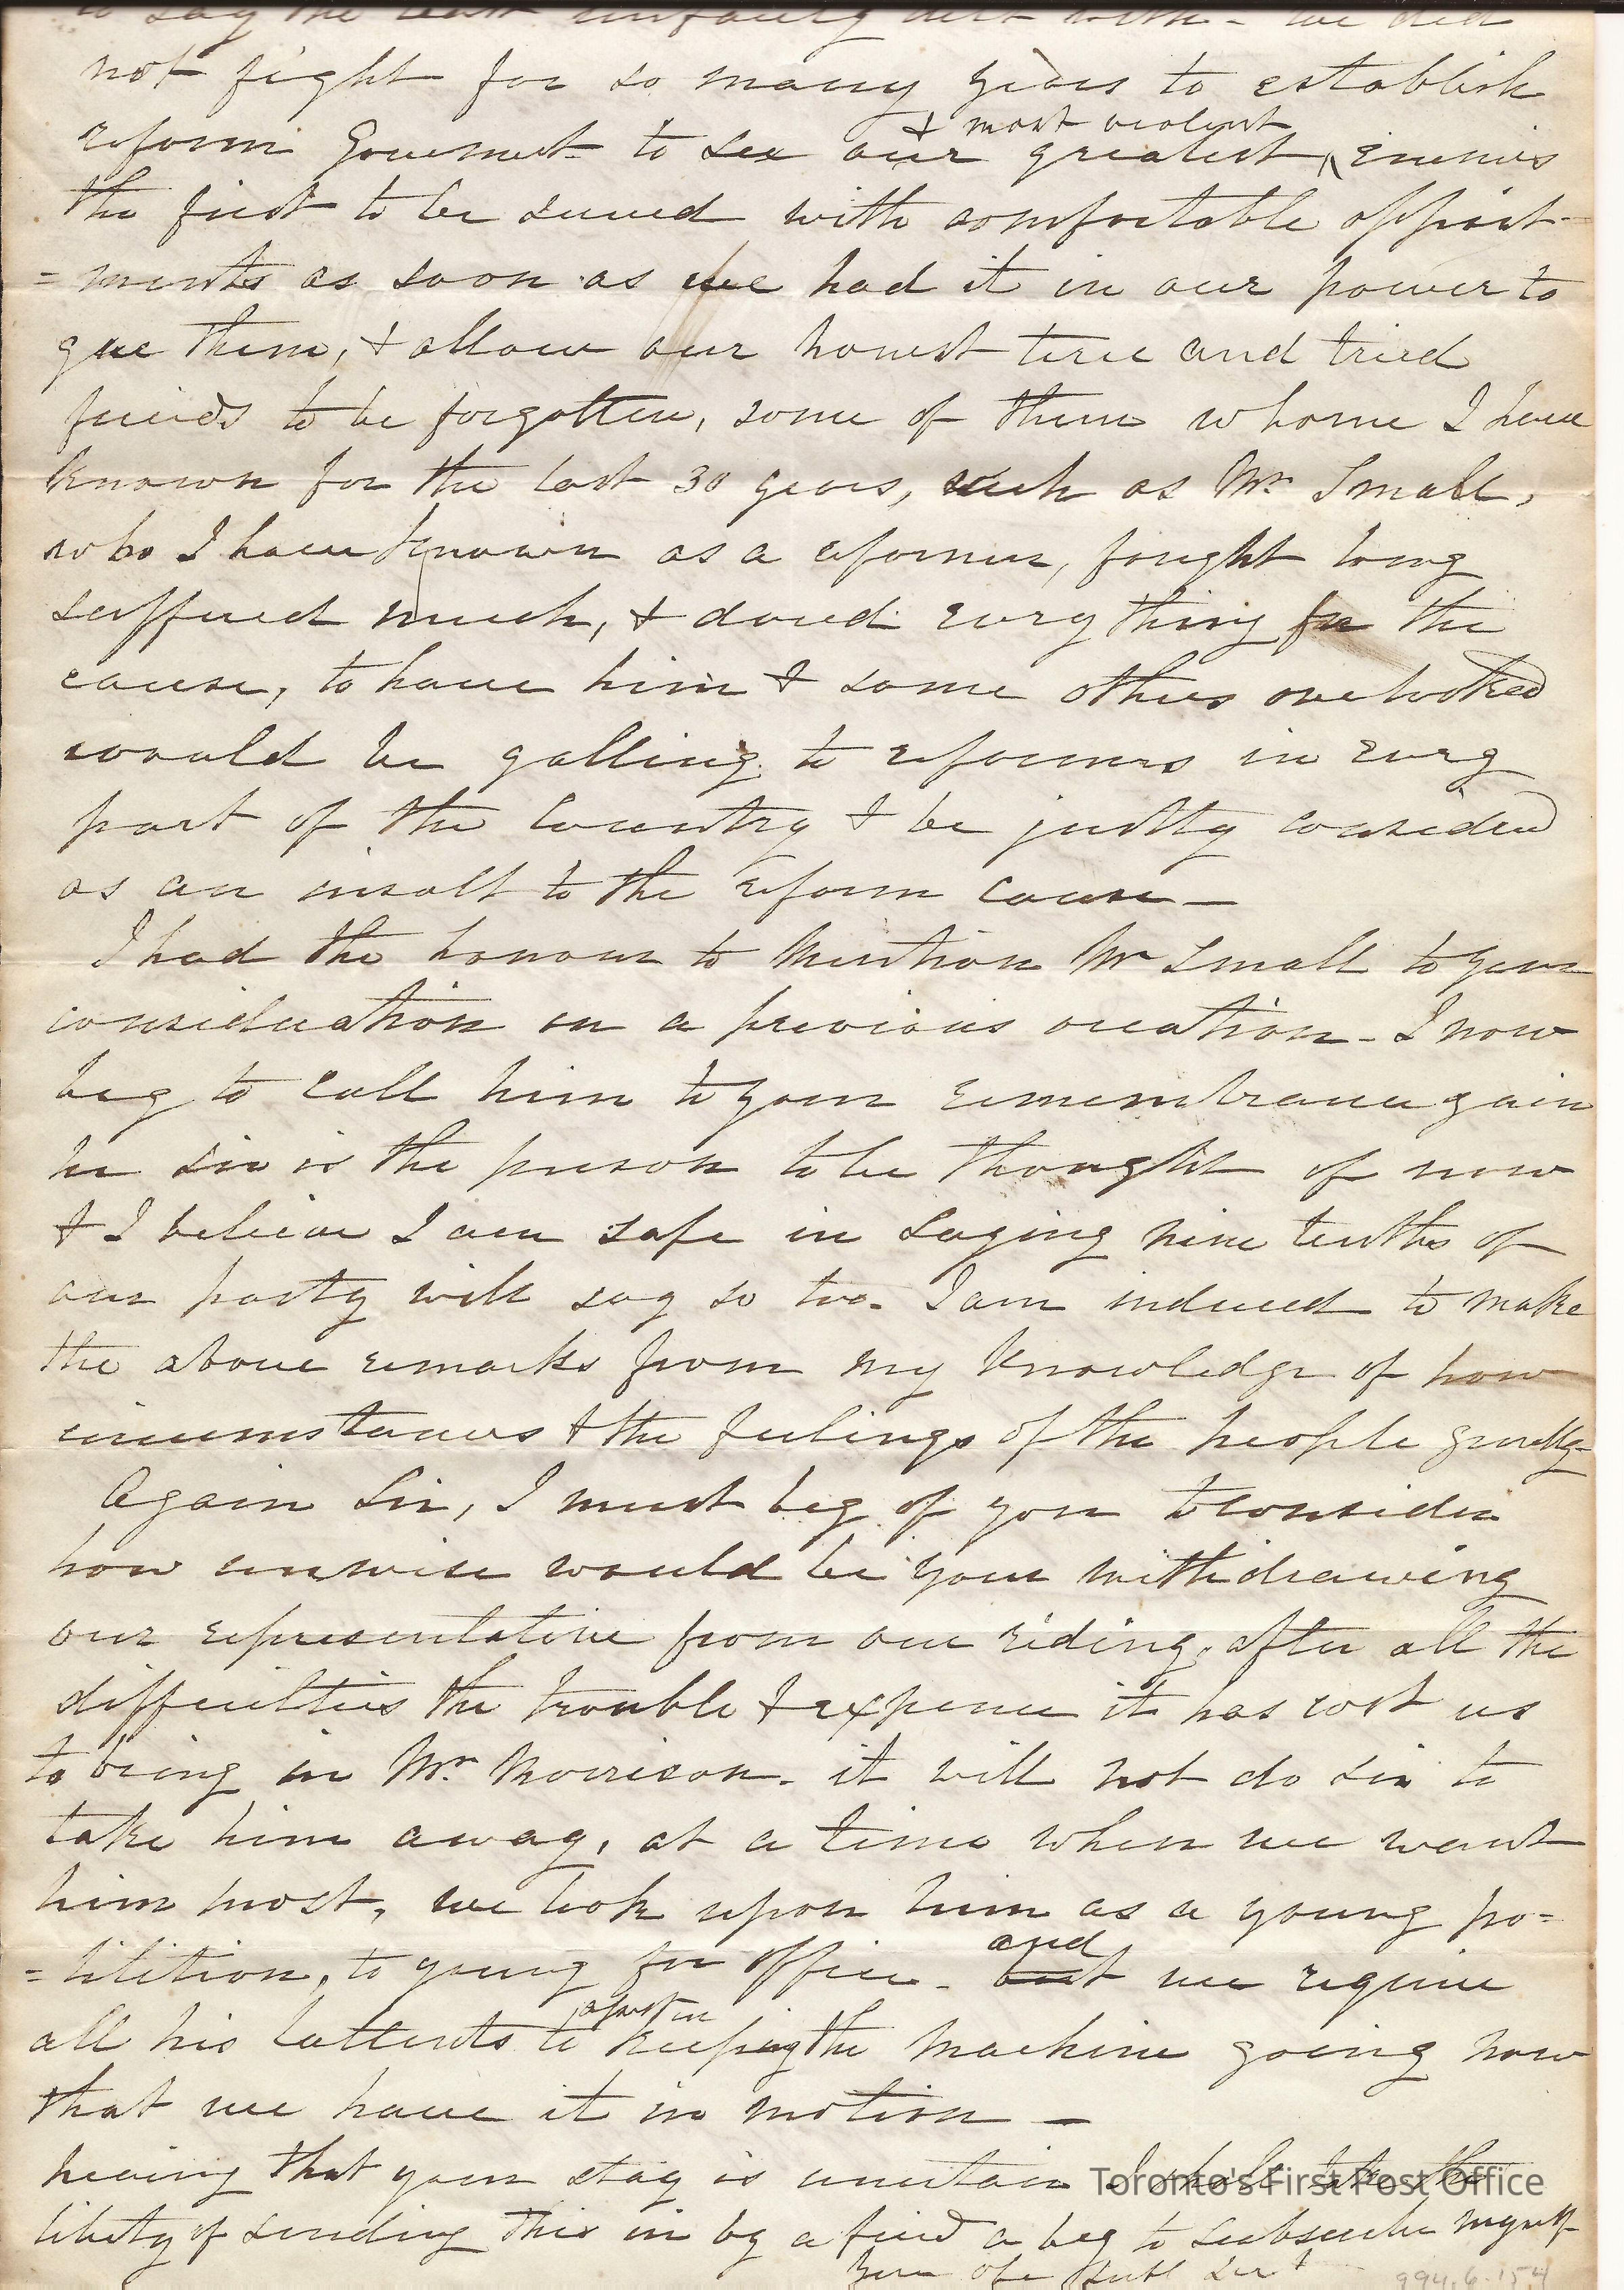 to say the least unfairly delt with - we did
not fight for so many years to establish
reform Goverment to see our greatest & most violent enemies
the first to be served with comfortable appoint-
=ments as soon as we had it in our power to
give them, & allow our honest true and tried
friends to be forgotten, some of them whome I have
known for the last 30 years, such as Mr. Small,
who I have known as a reformer, fought long
suffered much, & dared every thing for the
cause, to have him & some others overlooked
would be galling to reformers in every
part of the Country & be justly considered
as an insult to the reform cause -
I had the honour to mention Mr Small to your
consideration on a previous occation - I now
beg to call him to your remembrance again
he sir is the person to be thought of now
& I believe I am safe in saying nine tenths of
our party will say so too. I am induced to make
the above remarks from my knowledge of how
circumstances & the feelings of the people generally
Again Sir, I must beg of you to consider
how unwise would be your withdrawing
our representative from our riding, after all the
difficulties the trouble & expence it has cost us
to bring in Mr. Morrison. it will not do sir to
take him away, at a time when we want
him most, we look upon him as a young po=
=litition, to young for office - and but we require
all his tallents to assist in keeping the machine going now
that we have it in motion -
hearing that your stay is uncertain I shall take the
liberty of sending this in by a friend & beg to subscribe myself
Your obt Servt
Toronto's First Post Office
994.6.154